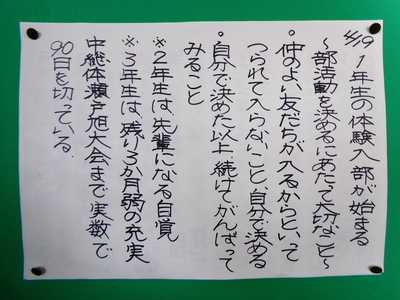 4/19 1年生の体験入部が始まる
〜部活動を決めるにあたって大切なこと〜
・仲のよい友だちが入るからといって
つられて入らないこと、自分で決める
・自分で決めた以上、続けてがんばって
みること
※2年生は、先輩になる自覚
※3年生は残り3か月弱の充実
中総体瀬戸旭大会まで実数で
90日を切っている。